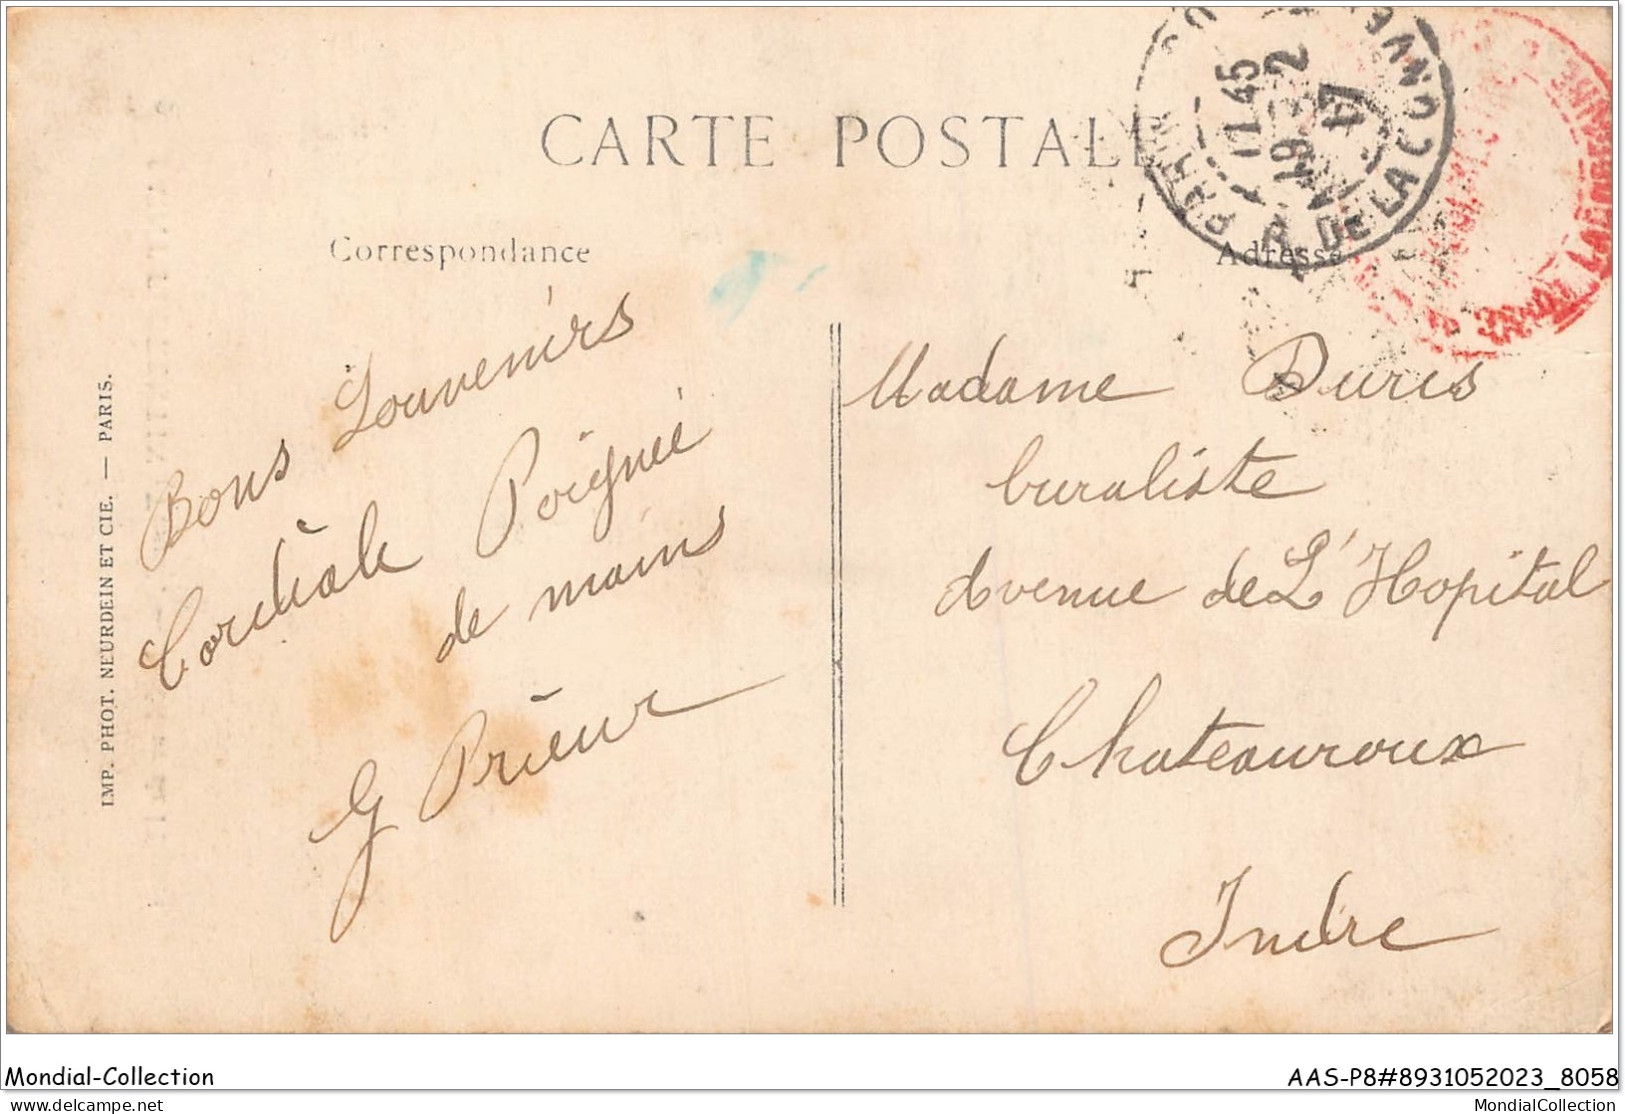 CARTE POSTALE
Correspondance
Adresse
PARIS
17 45
19 - 2
17
R. DE LA CONVE
IMP. PHOT. NEURDEIN ET CIE. — PARIS.
Bons Souvenirs
Cordiale Poignée
de mains
G Prieur
Madame Duris
buraliste
Avenue de L'Hopital
Chateauroux
Indre
Mondial-Collection
AAS-P8#8931052023_8058
delcampe.net
MondialCollection